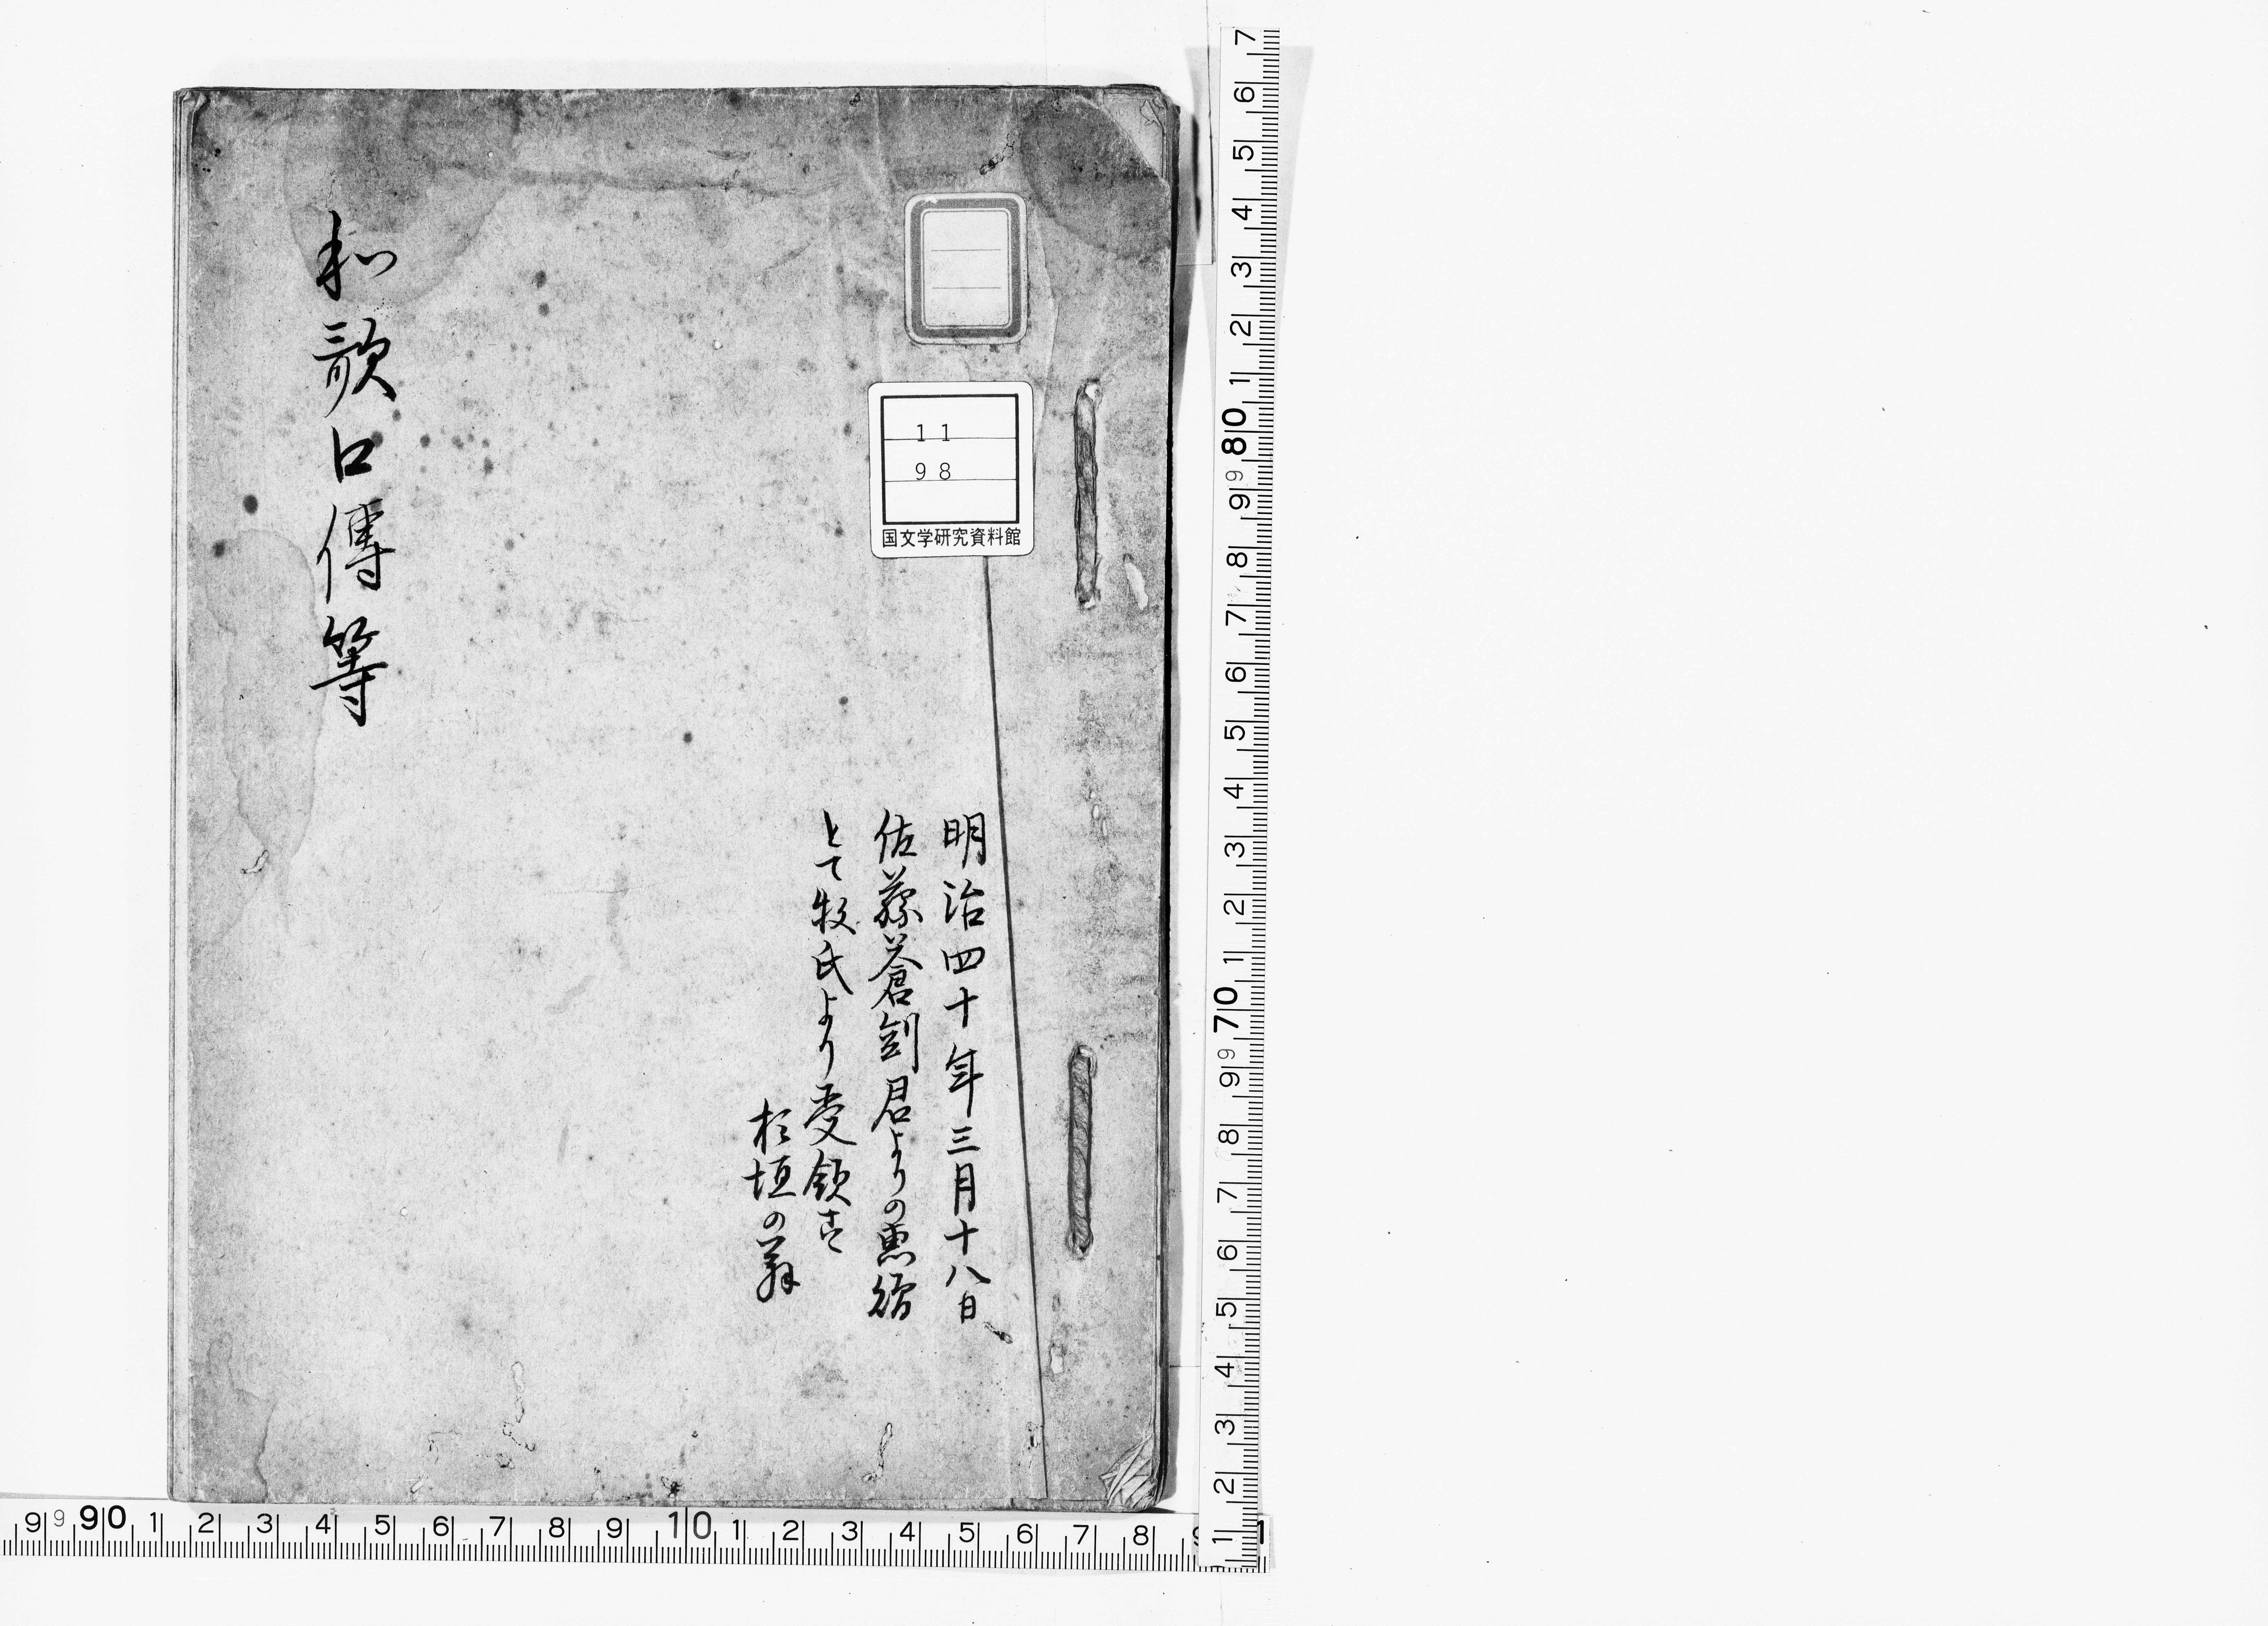 明治四十年三月十八日
佐藤蒼剣君よりの恵贈
とて牧氏より受領す
杉垣の翁
和歌口傳等
11
98
国文学研究資料館
7 6 5 4 3 2 1 80 9 8 7 6 5 4 3 2 1 70 9 8 7 6 5 4 3 2 1
9 90 1 2 3 4 5 6 7 8 9 10 1 2 3 4 5 6 7 8